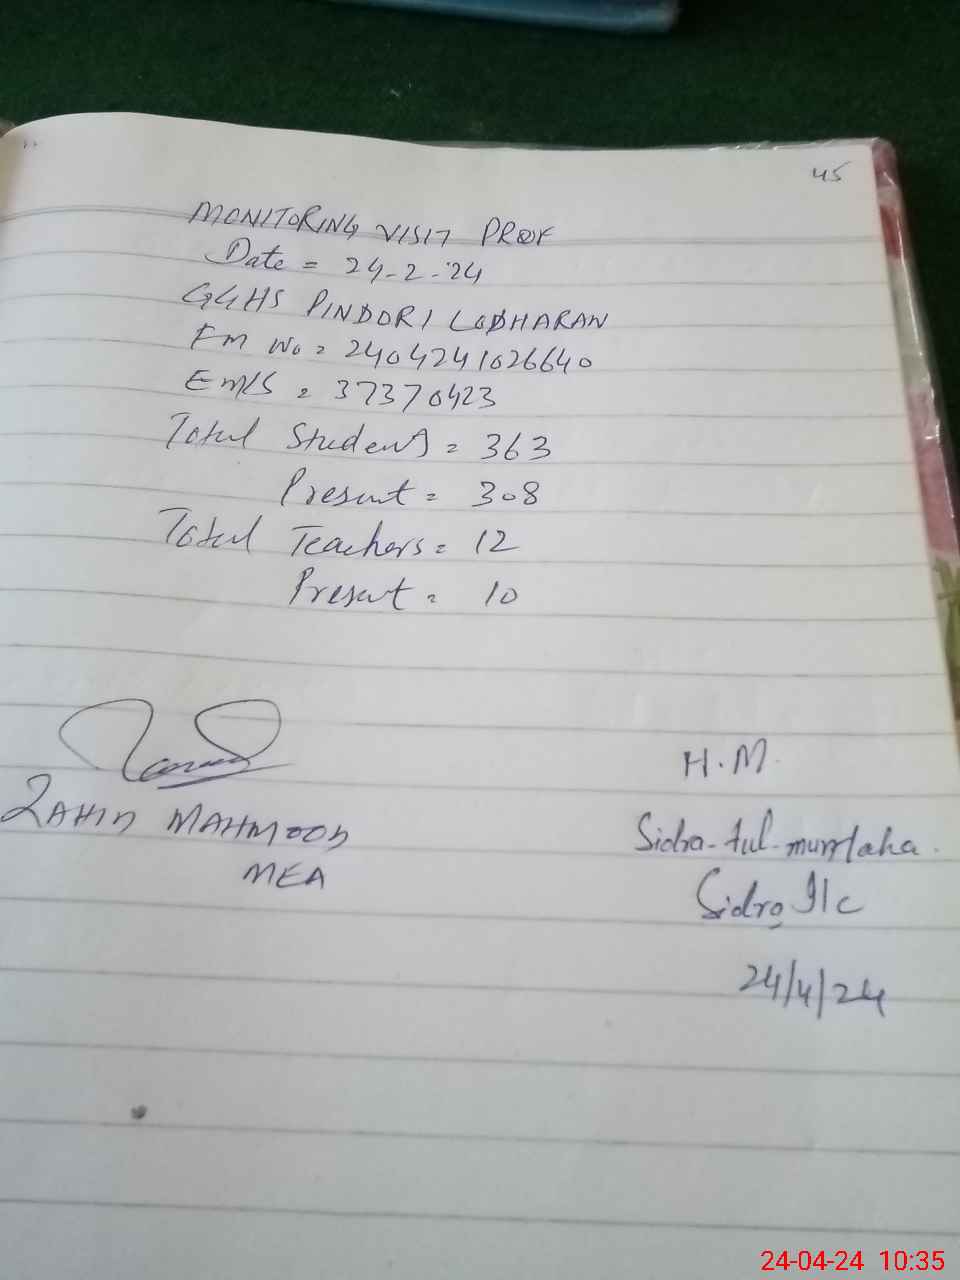 45
MONITORING VISIT PROOF
Date = 24-2-24
GGHS PINDORI LODHARAN
Fm No = 2404241026640
EMIS = 37370423
Total Students = 363
Present = 308
Total Teachers = 12
Present = 10
ZAHID MAHMOOD
MEA
H.M.
Sidra-tul-muntaha.
Sidra I/c
24/4/24
24-04-24 10:35